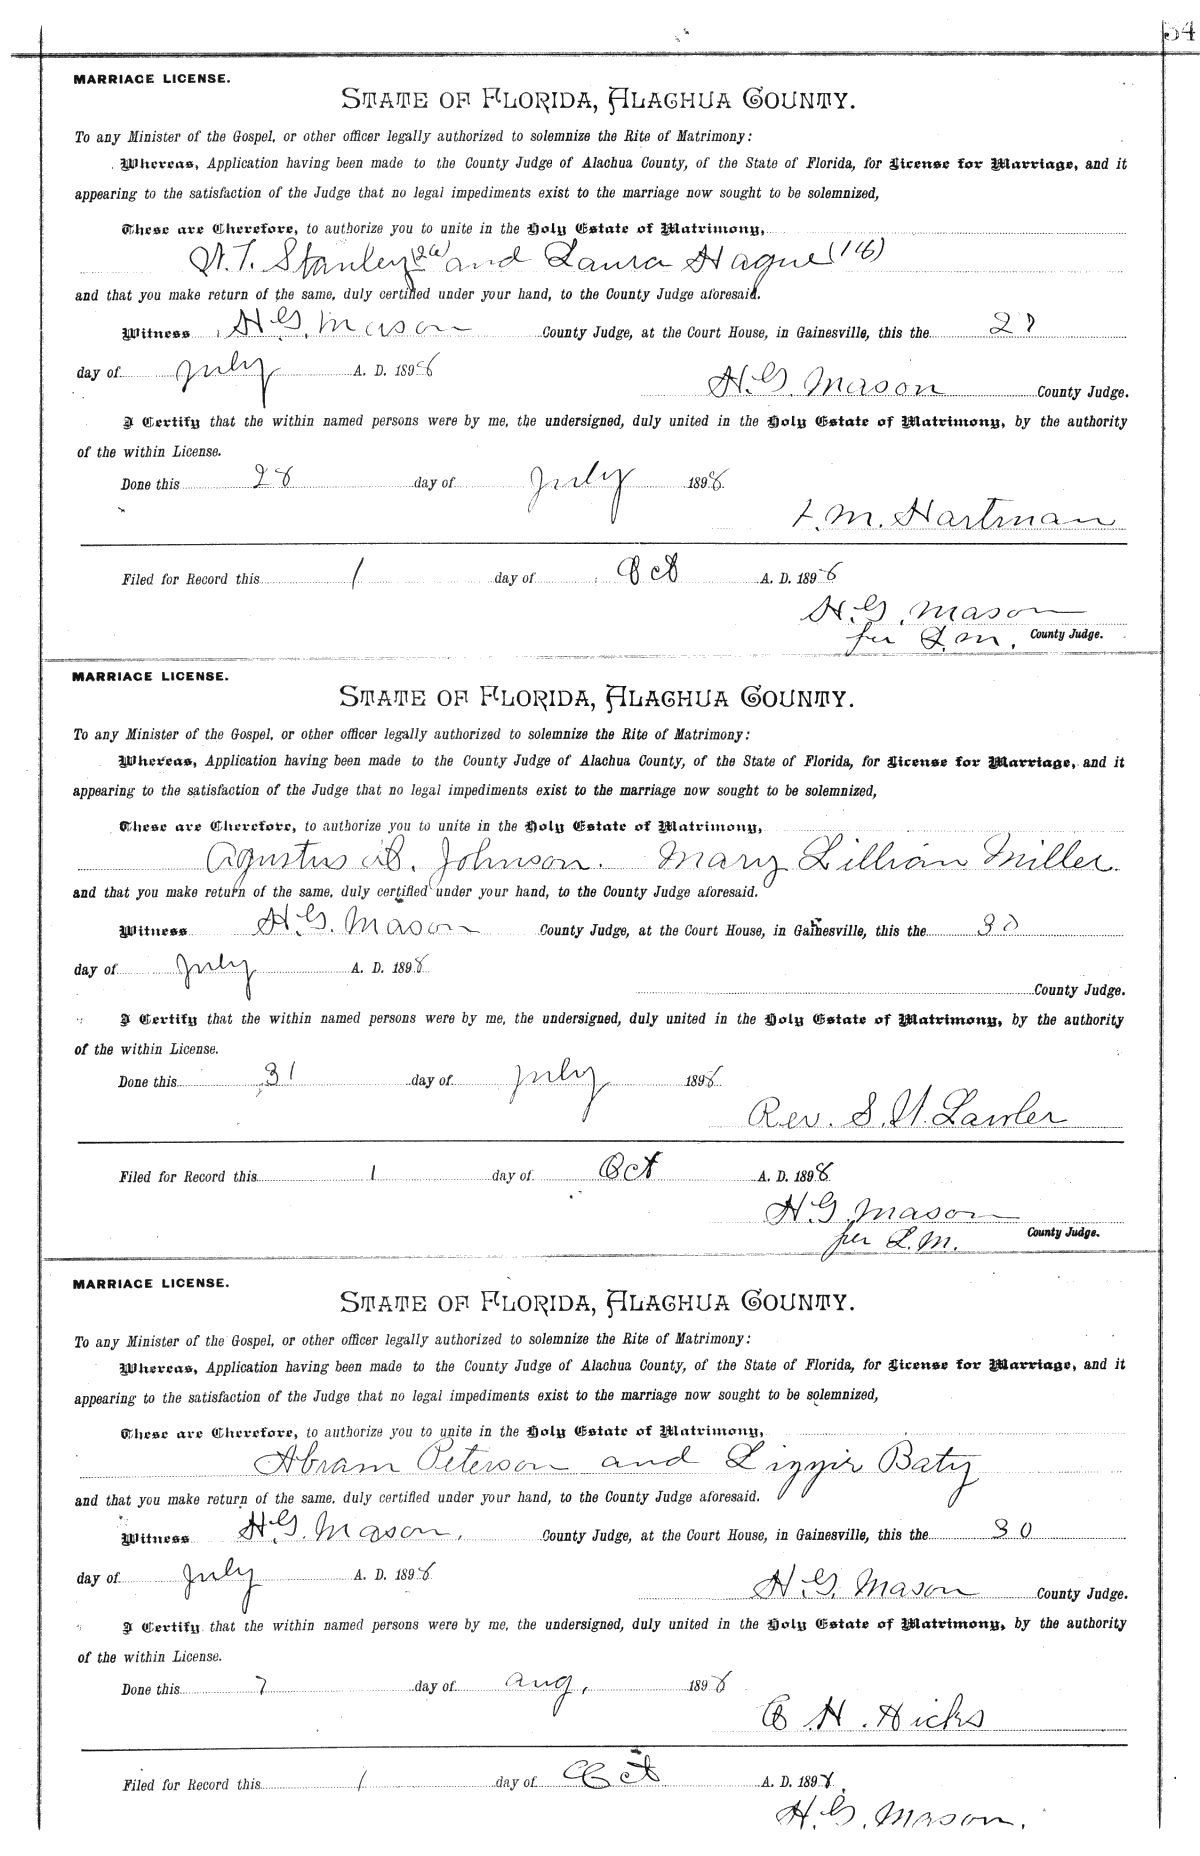 MARRIAGE LICENSE.
STATE OF FLORIDA, ALACHUA COUNTY.
To any Minister of the Gospel, or other officer legally authorized to solemnize the Rite of Matrimony:
Whereas, Application having been made to the County Judge of Alachua County, of the State of Florida, for License for Marriage, and it
appearing to the satisfaction of the Judge that no legal impediments exist to the marriage now sought to be solemnized,
These are Therefore, to authorize you to unite in the Holy Estate of Matrimony,
W. T. Stanley and Laura Hague
and that you make return of the same, duly certified under your hand, to the County Judge aforesaid.
Witness H. G. Mason County Judge, at the Court House, in Gainesville, this the 27
day of July A. D. 1898
H. G. Mason County Judge.
I Certify that the within named persons were by me, the undersigned, duly united in the Holy Estate of Matrimony, by the authority
of the within License.
Done this 28 day of July 1898
M. Hartman
Filed for Record this 1 day of Oct A. D. 1898
H. G. Mason
per L. M. County Judge.
MARRIAGE LICENSE.
STATE OF FLORIDA, ALACHUA COUNTY.
To any Minister of the Gospel, or other officer legally authorized to solemnize the Rite of Matrimony:
Whereas, Application having been made to the County Judge of Alachua County, of the State of Florida, for License for Marriage, and it
appearing to the satisfaction of the Judge that no legal impediments exist to the marriage now sought to be solemnized,
These are Therefore, to authorize you to unite in the Holy Estate of Matrimony,
Agustus Johnson. Mary Lillian Miller.
and that you make return of the same, duly certified under your hand, to the County Judge aforesaid.
Witness H. G. Mason County Judge, at the Court House, in Gainesville, this the 30
day of July A. D. 1898
County Judge.
I Certify that the within named persons were by me, the undersigned, duly united in the Holy Estate of Matrimony, by the authority
of the within License.
Done this 31 day of July 1898
Rev. S. Lawler
Filed for Record this 1 day of Oct A. D. 1898
H. G. Mason
per L. M. County Judge.
MARRIAGE LICENSE.
STATE OF FLORIDA, ALACHUA COUNTY.
To any Minister of the Gospel, or other officer legally authorized to solemnize the Rite of Matrimony:
Whereas, Application having been made to the County Judge of Alachua County, of the State of Florida, for License for Marriage, and it
appearing to the satisfaction of the Judge that no legal impediments exist to the marriage now sought to be solemnized,
These are Therefore, to authorize you to unite in the Holy Estate of Matrimony,
Abram Peterson and Lizzie Baty
and that you make return of the same, duly certified under your hand, to the County Judge aforesaid.
Witness H. G. Mason. County Judge, at the Court House, in Gainesville, this the 30
day of July A. D. 1898
H. G. Mason County Judge.
I Certify that the within named persons were by me, the undersigned, duly united in the Holy Estate of Matrimony, by the authority
of the within License.
Done this 7 day of Aug, 1898
H. Hicks
Filed for Record this 1 day of Oct A. D. 1898.
H. G. Mason.